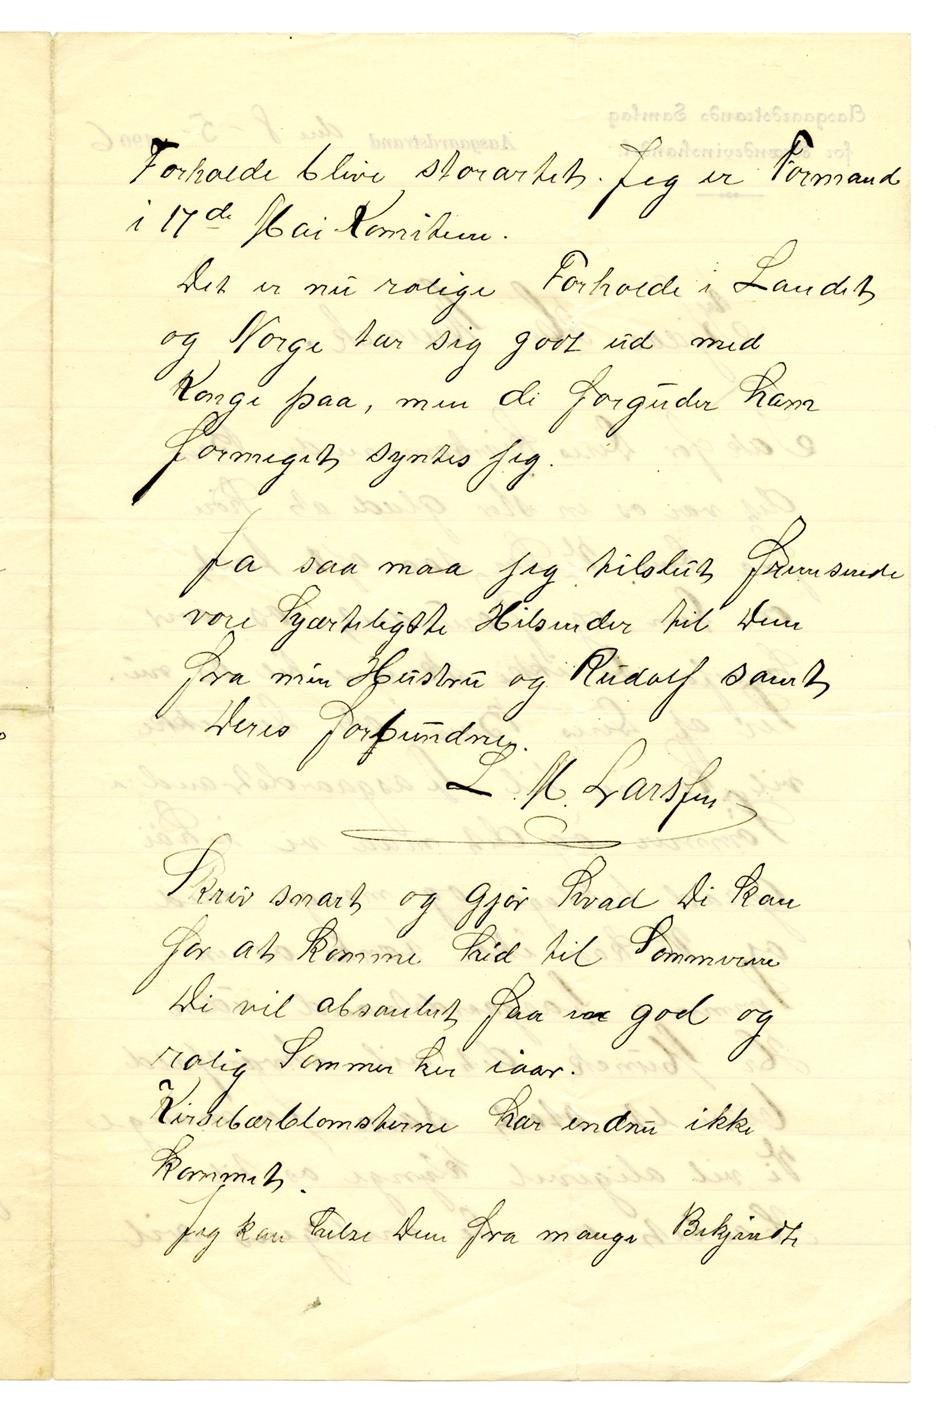 Forholde blive storartet. Jeg er Formand
i 17de Mai Komiteen.
Det er nu rolige Forholde i Landet
og Norge tar sig godt ud med
Konge paa, men de forguder ham
formeget syntes jeg.
Ja saa maa jeg tilslut fremsende
vore hjærteligste Hilsender til Dem
fra min Hustru og Rudolf samt
Deres forbundne.
L. M. Larssen
Skriv snart og gjør hvad De kan
for at komme hid til Sommeren
De vil absoulut faa en god og
rolig Sommer her iaar.
Kirsebærblomsterne har endnu ikke
kommet.
Jeg kan hilse Dem fra mange Bekjendte